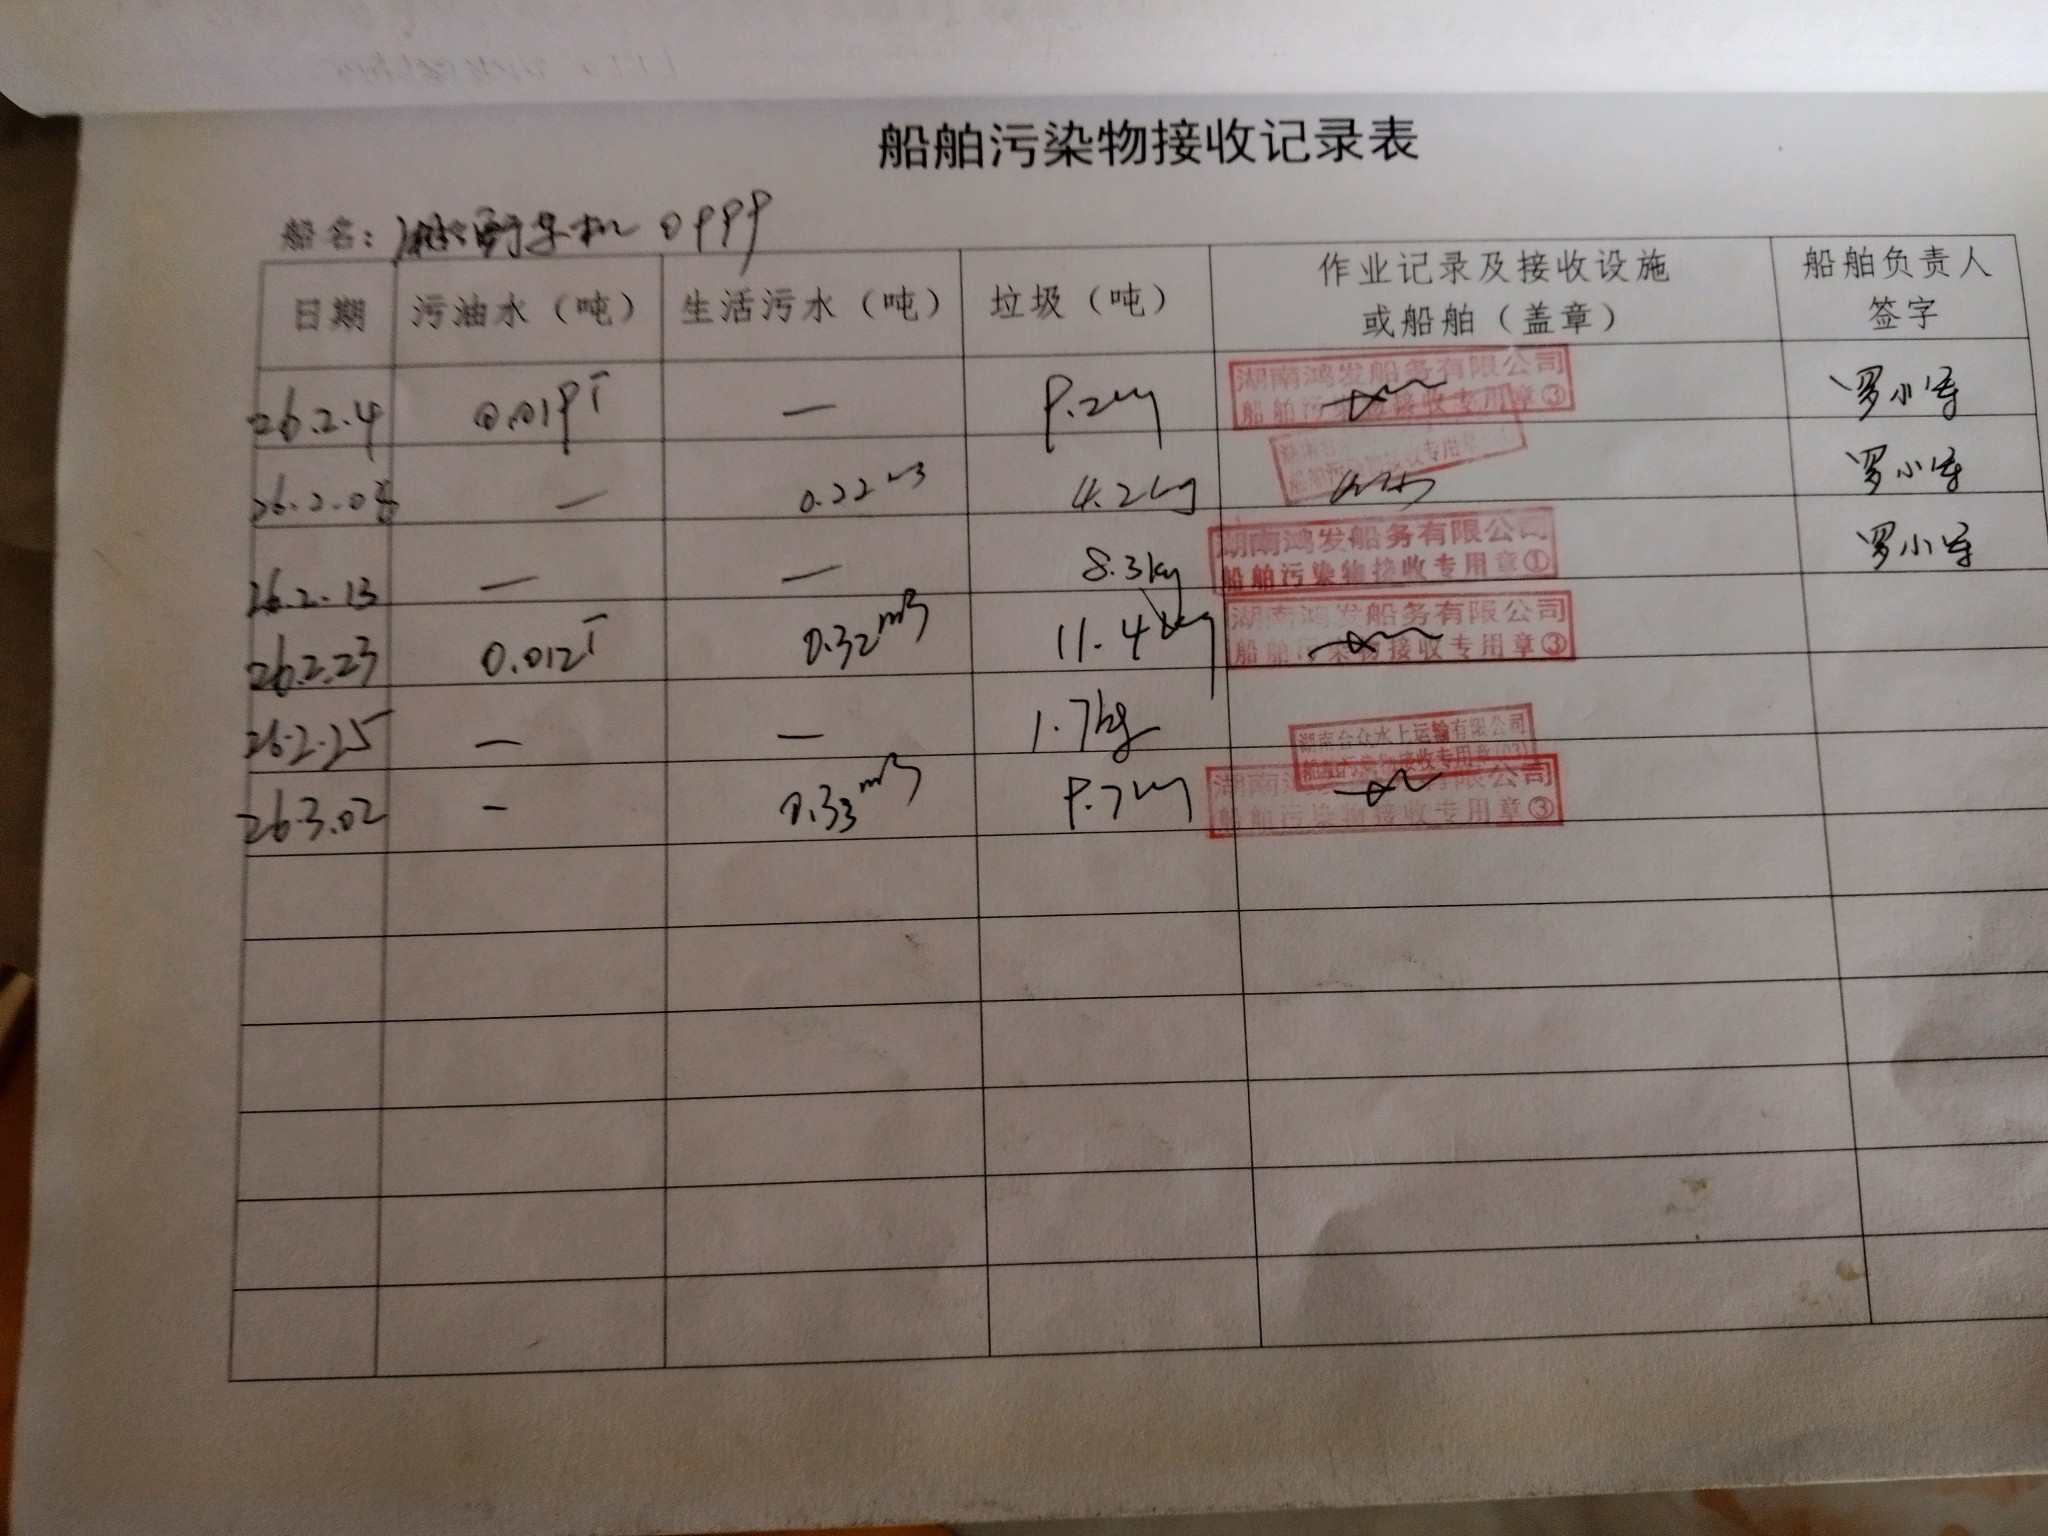 船舶污染物接收记录表
船名: 0999
日期 污油水（吨） 生活污水（吨） 垃圾（吨） 作业记录及接收设施或船舶（盖章） 船舶负责人签字
26.2.4 0.019T — 9.2kg 湖南鸿发船务有限公司 船舶污染物接收专用章③ 罗小
26.2.0 — 0.22m3 4.2kg 船舶污染物接收专用章 罗小
26.2.13 — — 8.3kg 湖南鸿发船务有限公司 船舶污染物接收专用章① 罗小
26.2.23 0.012T 0.32m3 11.4kg 湖南鸿发船务有限公司 船舶污染物接收专用章③
26.2.25 — — 1.7kg 湖南合众水上运输有限公司 船舶污染物接收专用章(03)
26.3.02 — 0.33m3 9.7kg 湖南 有限公司 船舶污染物接收专用章③